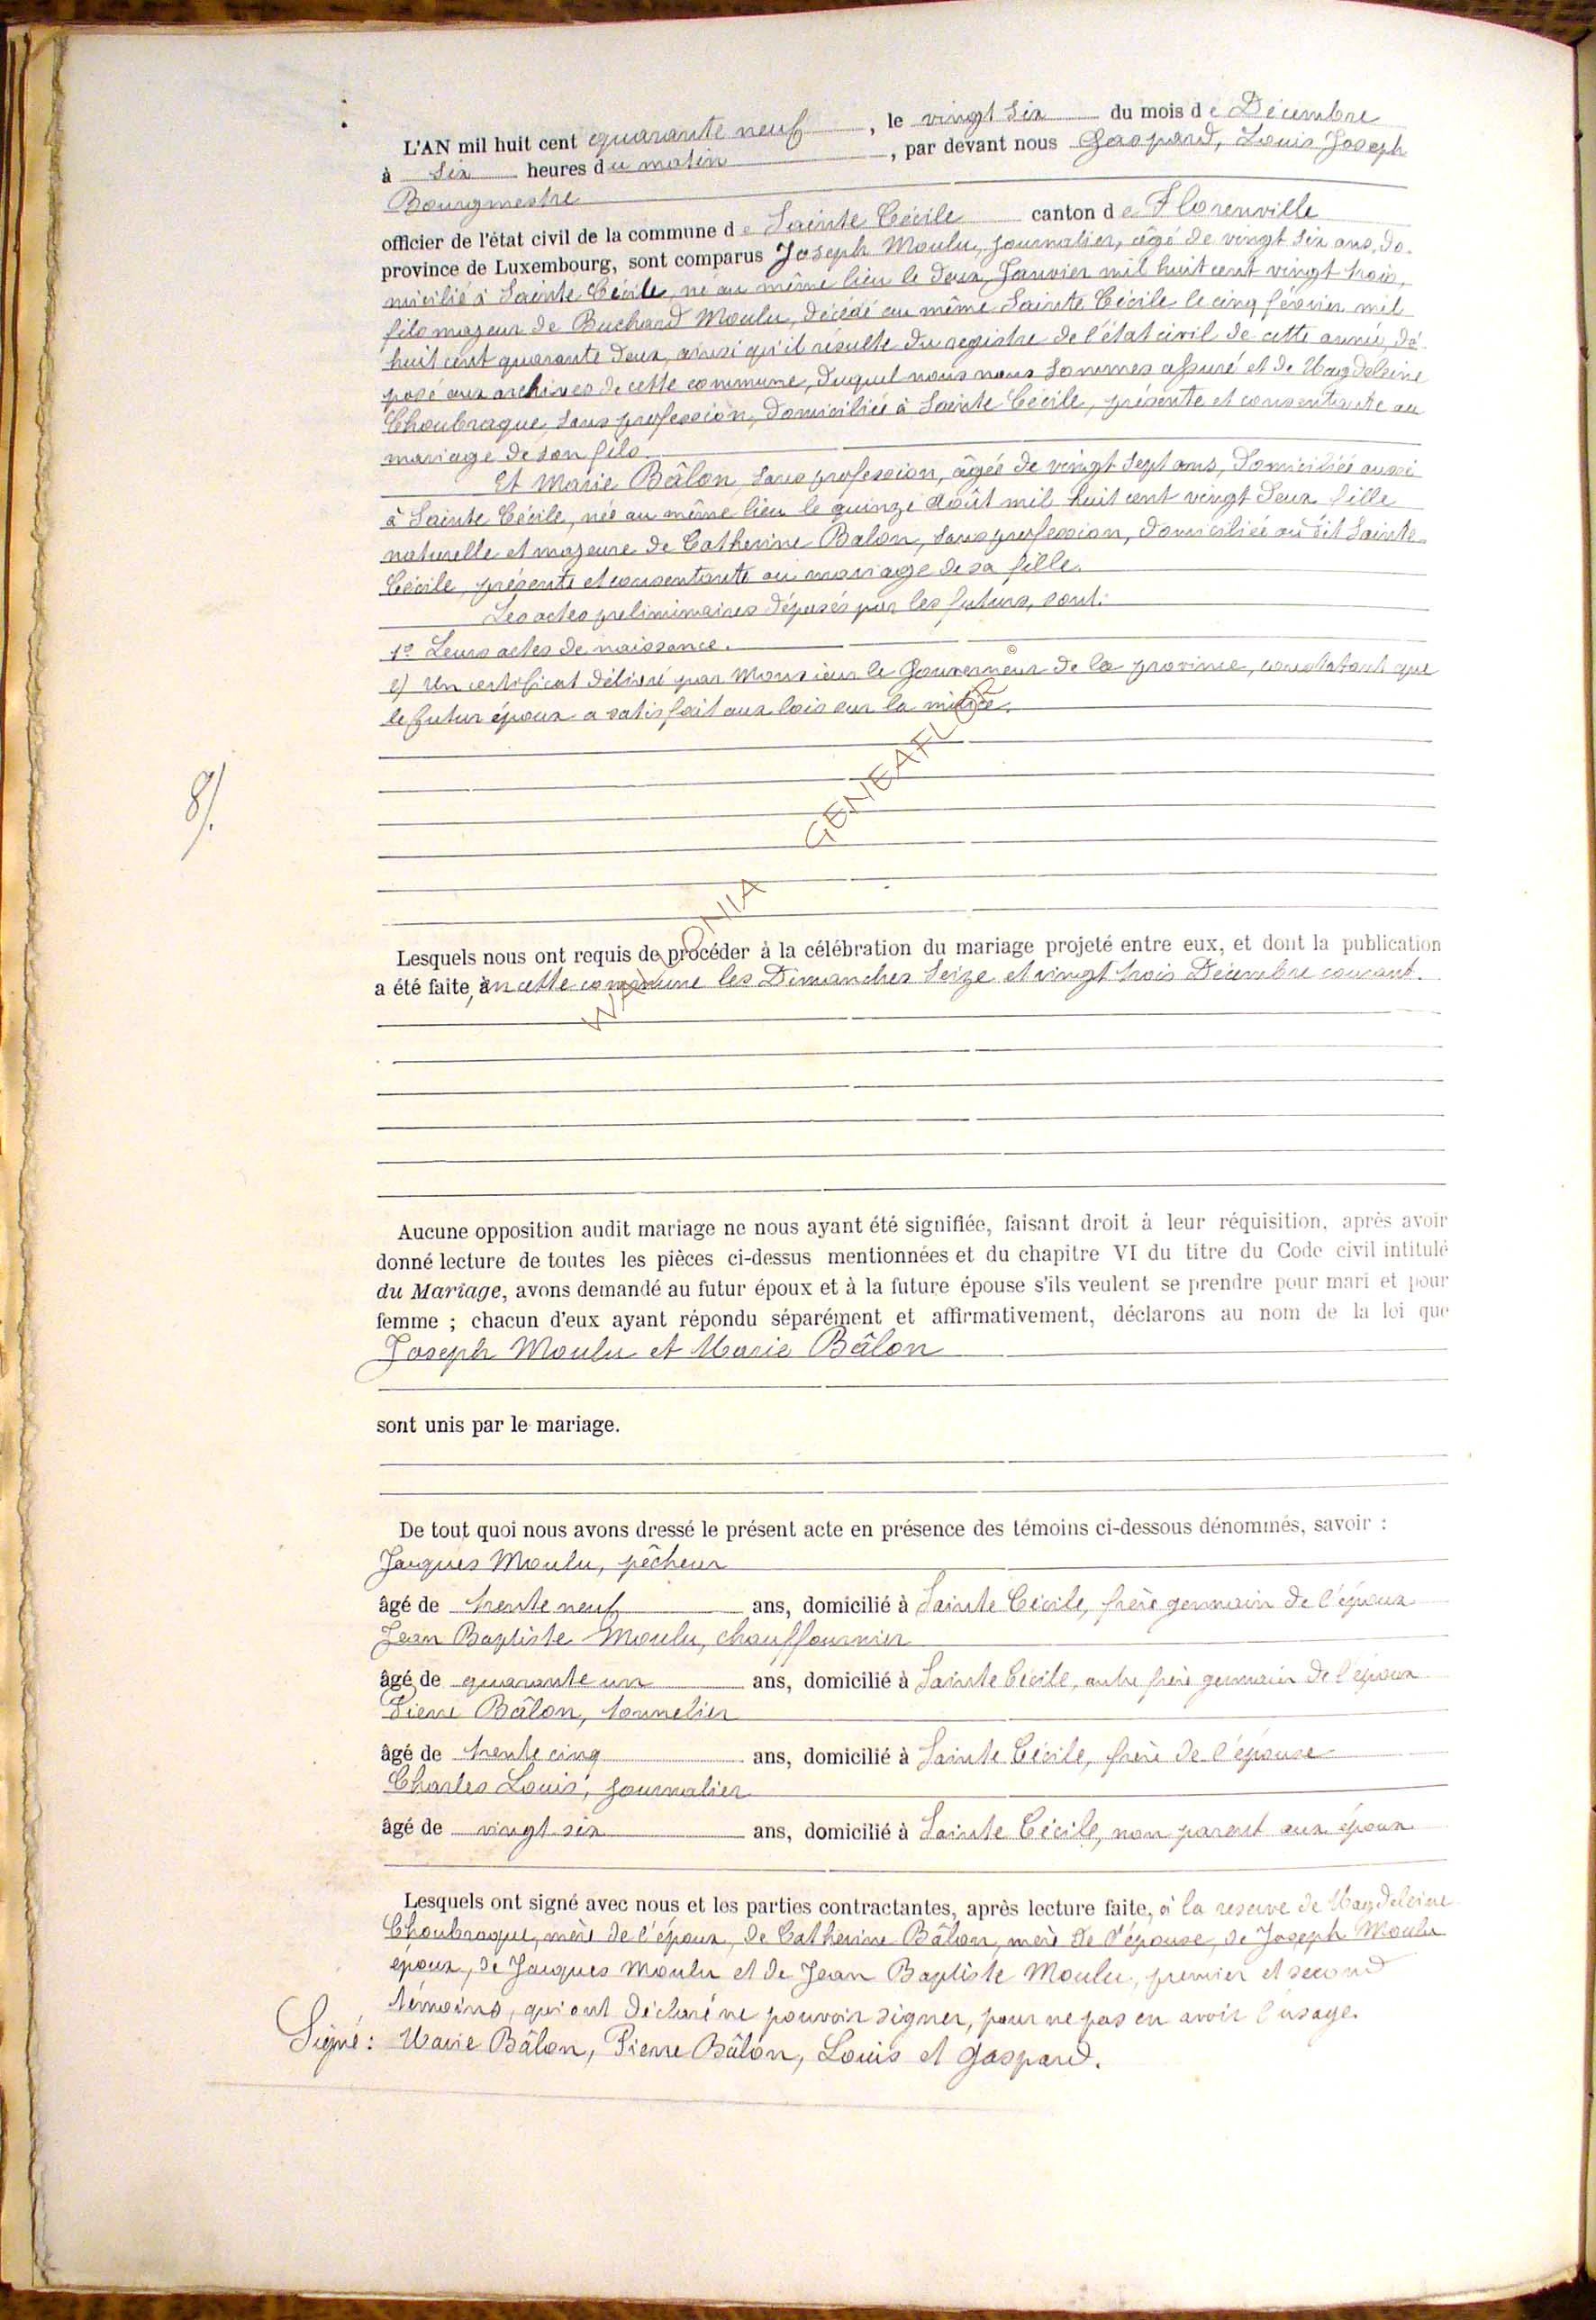 L'AN mil huit cent quarante neuf, le vingt six du mois de Décembre
à six heures du matin, par devant nous Gaspard, Louis Joseph
Bourgmestre
officier de l'état civil de la commune de Sainte Cécile canton de Florenville
province de Luxembourg, sont comparus Joseph Moulu, journalier, âgé de vingt six ans, do-
micilié à Sainte Cécile, né au même lieu le deux Janvier mil huit cent vingt trois,
fils majeur de Buchard Moulu, décédé au même Sainte Cécile le cinq février mil
huit cent quarante deux, ainsi qu'il résulte du registre de l'état civil de cette année, dé-
posé aux archives de cette commune, duquel nous nous sommes assuré et de Magdeleine
Choubraque, sans profession, domiciliée à Sainte Cécile, présente et consentante au
mariage de son fils.
Et Marie Bâlon, sans profession, âgée de vingt sept ans, domiciliée aussi
à Sainte Cécile, née au même lieu le quinze Août mil huit cent vingt deux, fille
naturelle et majeure de Catherine Balon, sans profession, domiciliée au dit Sainte-
Cécile, présente et consentante au mariage de sa fille.
Les actes preliminaires déposés par les futurs, sont:
1° Leurs actes de naissance.
©
2) Un certificat délivré par Monsieur le Gouverneur de la province, constatant que
le futur époux a satisfait aux lois sur la milice.
8/.
WALLONIA GENEAFLOR
Lesquels nous ont requis de procéder à la célébration du mariage projeté entre eux, et dont la publication
a été faite, en cette commune les Dimanches Seize et vingt trois Décembre courant.
Aucune opposition audit mariage ne nous ayant été signifiée, faisant droit à leur réquisition, après avoir
donné lecture de toutes les pièces ci-dessus mentionnées et du chapitre VI du titre du Code civil intitulé
du Mariage, avons demandé au futur époux et à la future épouse s'ils veulent se prendre pour mari et pour
femme ; chacun d'eux ayant répondu séparément et affirmativement, déclarons au nom de la loi que
Joseph Moulu et Marie Bâlon
sont unis par le mariage.
De tout quoi nous avons dressé le présent acte en présence des témoins ci-dessous dénommés, savoir :
Jacques Moulu, pêcheur
âgé de trente neuf ans, domicilié à Sainte Cécile, frère germain de l'époux
Jean Baptiste Moulu, chauffournier
âgé de quarante un ans, domicilié à Sainte Cécile, autre frère germain de l'époux
Pierre Bâlon, tonnelier
âgé de trente cinq ans, domicilié à Sainte Cécile, frère de l'épouse
Charles Louis, journalier
âgé de vingt six ans, domicilié à Sainte Cécile, non parent aux époux
Lesquels ont signé avec nous et les parties contractantes, après lecture faite, à la reserve de Magdeleine
Choubraque, mère de l'époux, de Catherine Bâlon, mère de l'épouse, de Joseph Moulu
époux, de Jacques Moulu et de Jean Baptiste Moulu, premier et second
témoins, qui ont déclaré ne pouvoir signer, pour ne pas en avoir l'usage.
Signé : Marie Bâlon, Pierre Bâlon, Louis et Gaspard.